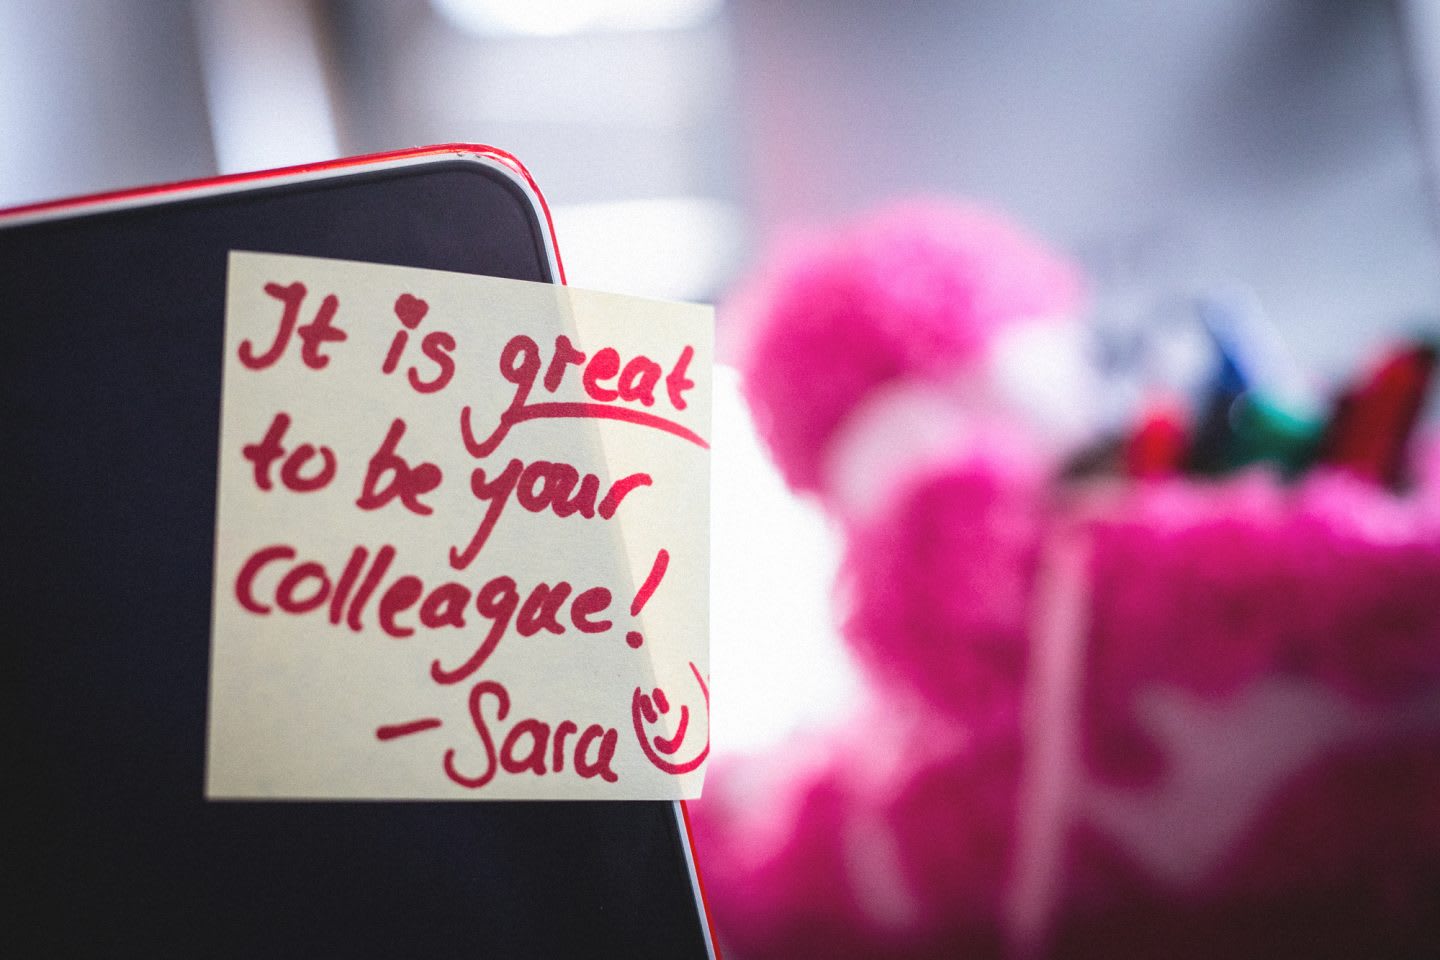 It is great
to be your
colleague!
- Sara